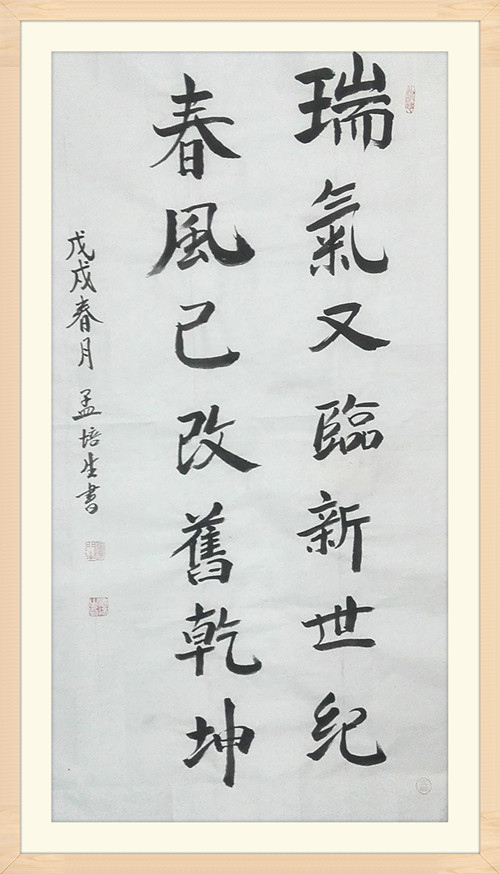 瑞氣又臨新世纪
春風已改舊乾坤
戊戌春月 孟培生書